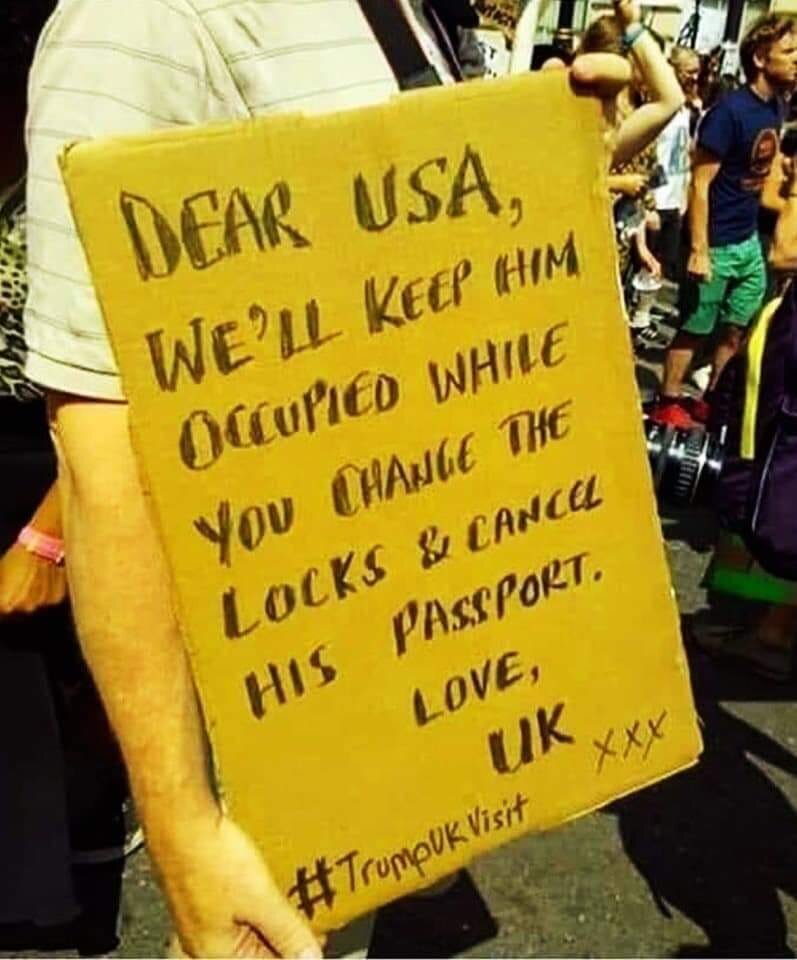 DEAR USA,
WE'LL KEEP HIM
OCCUPIED WHILE
YOU CHANGE THE
LOCKS & CANCEL
HIS PASSPORT.
LOVE,
UK xxx
#TrumpUKVisit